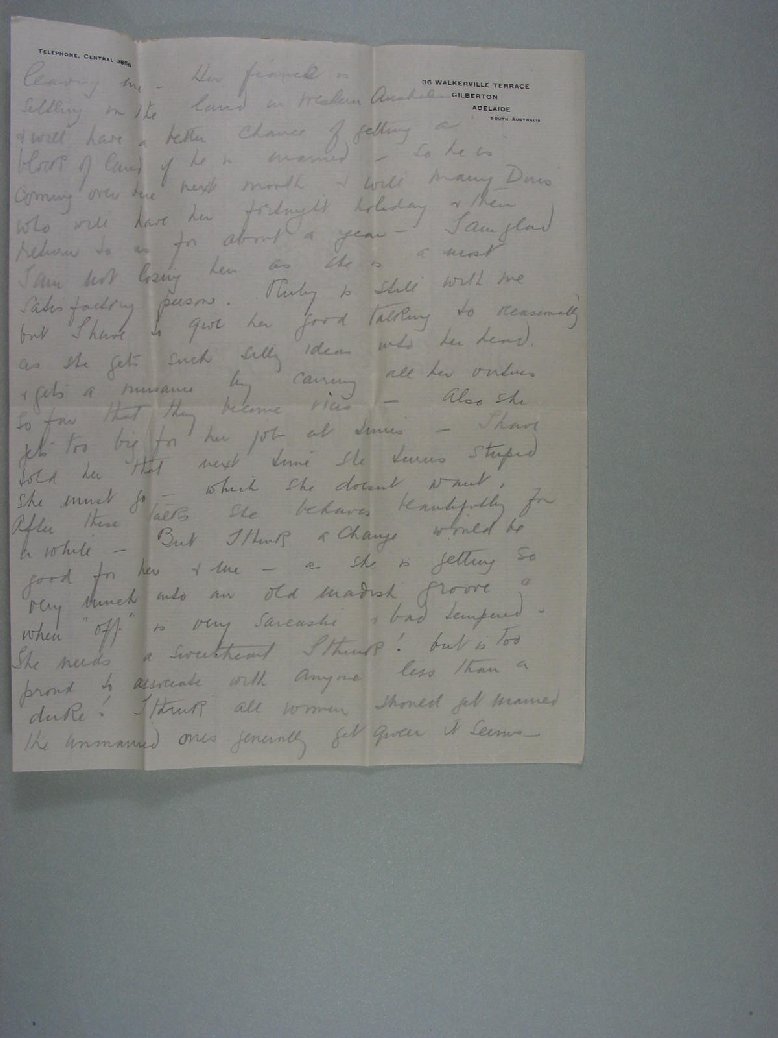 TELEPHONE, CENTRAL
36 WALKERVILLE TERRACE
GILBERTON
ADELAIDE
SOUTH AUSTRALIA
leaving me - Her fiancé is
settling on the land in Western Australia
& will have a better chance of getting a
block of land if he is married - so he is
coming over here next month & will marry Doris
who will have her fortnight holiday & then
return to us for about a year - I am glad
I am not losing her as she is a most
satisfactory person. Ruby is still with me
but I have to give her good talking to occasionally
as she gets such silly ideas into her head.
& gets a nuisance by carrying all her virtues
so far that they become vices - Also she
gets too big for her job at times - I have
told her that next time she turns stupid
she must go - which she doesnt want.
After these talks she behaves beautifully for
a while - But I think a change would be
good for her & me - as she is getting so
very much into an old maidish groove &
when "off" is very sarcastic & bad tempered -
She needs a sweetheart I think! but is too
proud to associate with anyone less than a
duke! I think all women should get married
the unmarried ones generally get queer it seems -